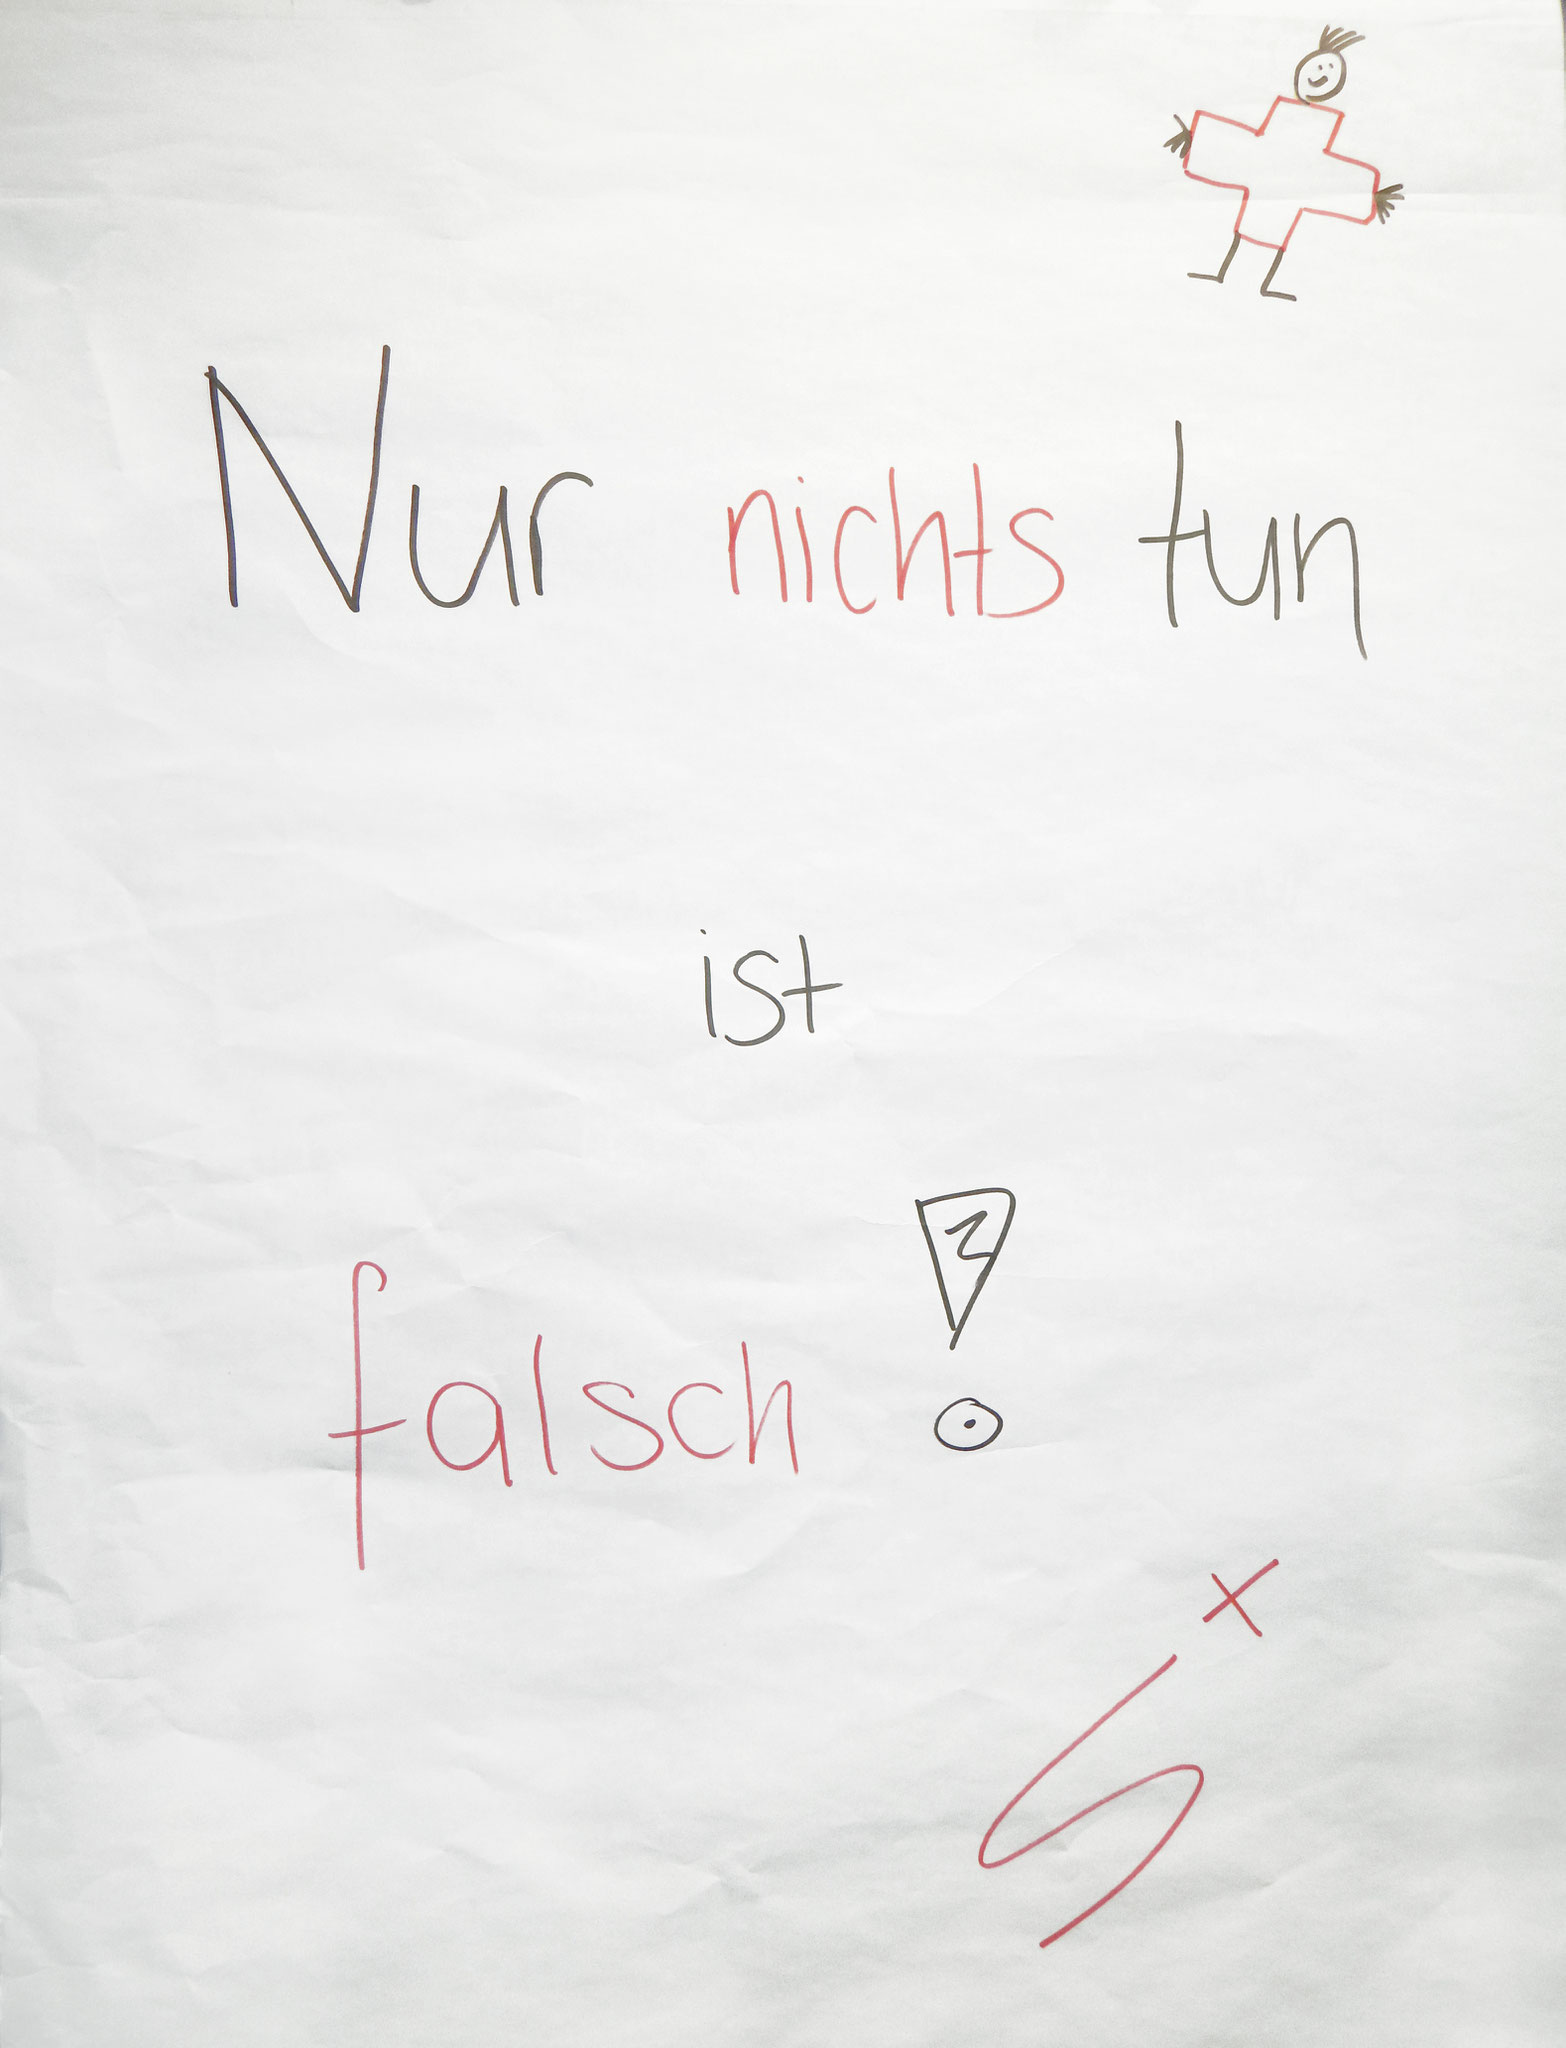 Nur nichts tun
ist
falsch!